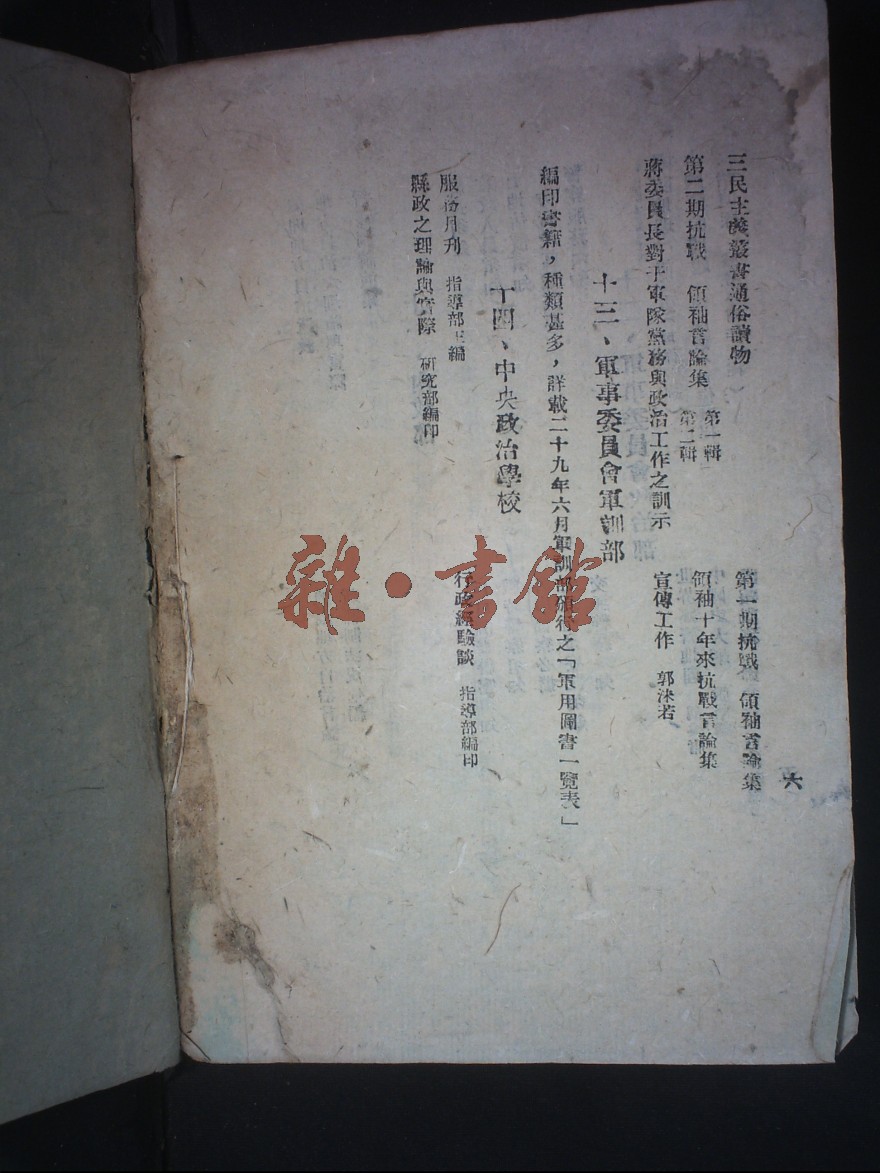 六
三民主義叢書通俗讀物
第一期抗戰　領袖言論集
第二期抗戰　領袖言論集　第一輯
第二輯
領袖十年來抗戰言論集
蔣委員長對于軍隊黨務與政治工作之訓示
宣傳工作　郭沬若
十三、軍事委員會軍訓部
編印書籍，種類甚多，詳載二十九年六月軍訓部頒行之「軍用圖書一覽表」
十四、中央政治學校
服務月刊　指導部主編
行政經驗談　指導部編印
縣政之理論與實際　研究部編印
雜·書館